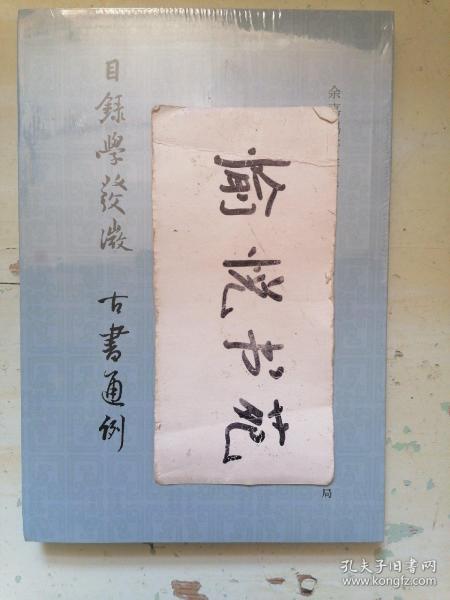 目錄學發微 古書通例
余嘉
愉悦书苑
局
孔夫子旧书网
www.kongfz.com